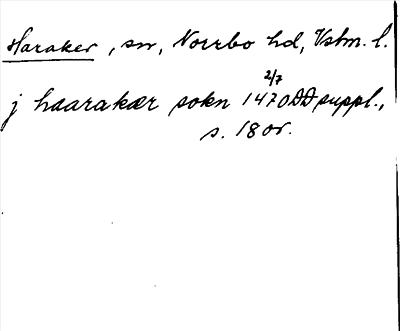 Haraker, sn, Norrbo hd, Vstm. l.
j haarakær sokn 1470 2/7 DD suppl.,
s. 18 or.